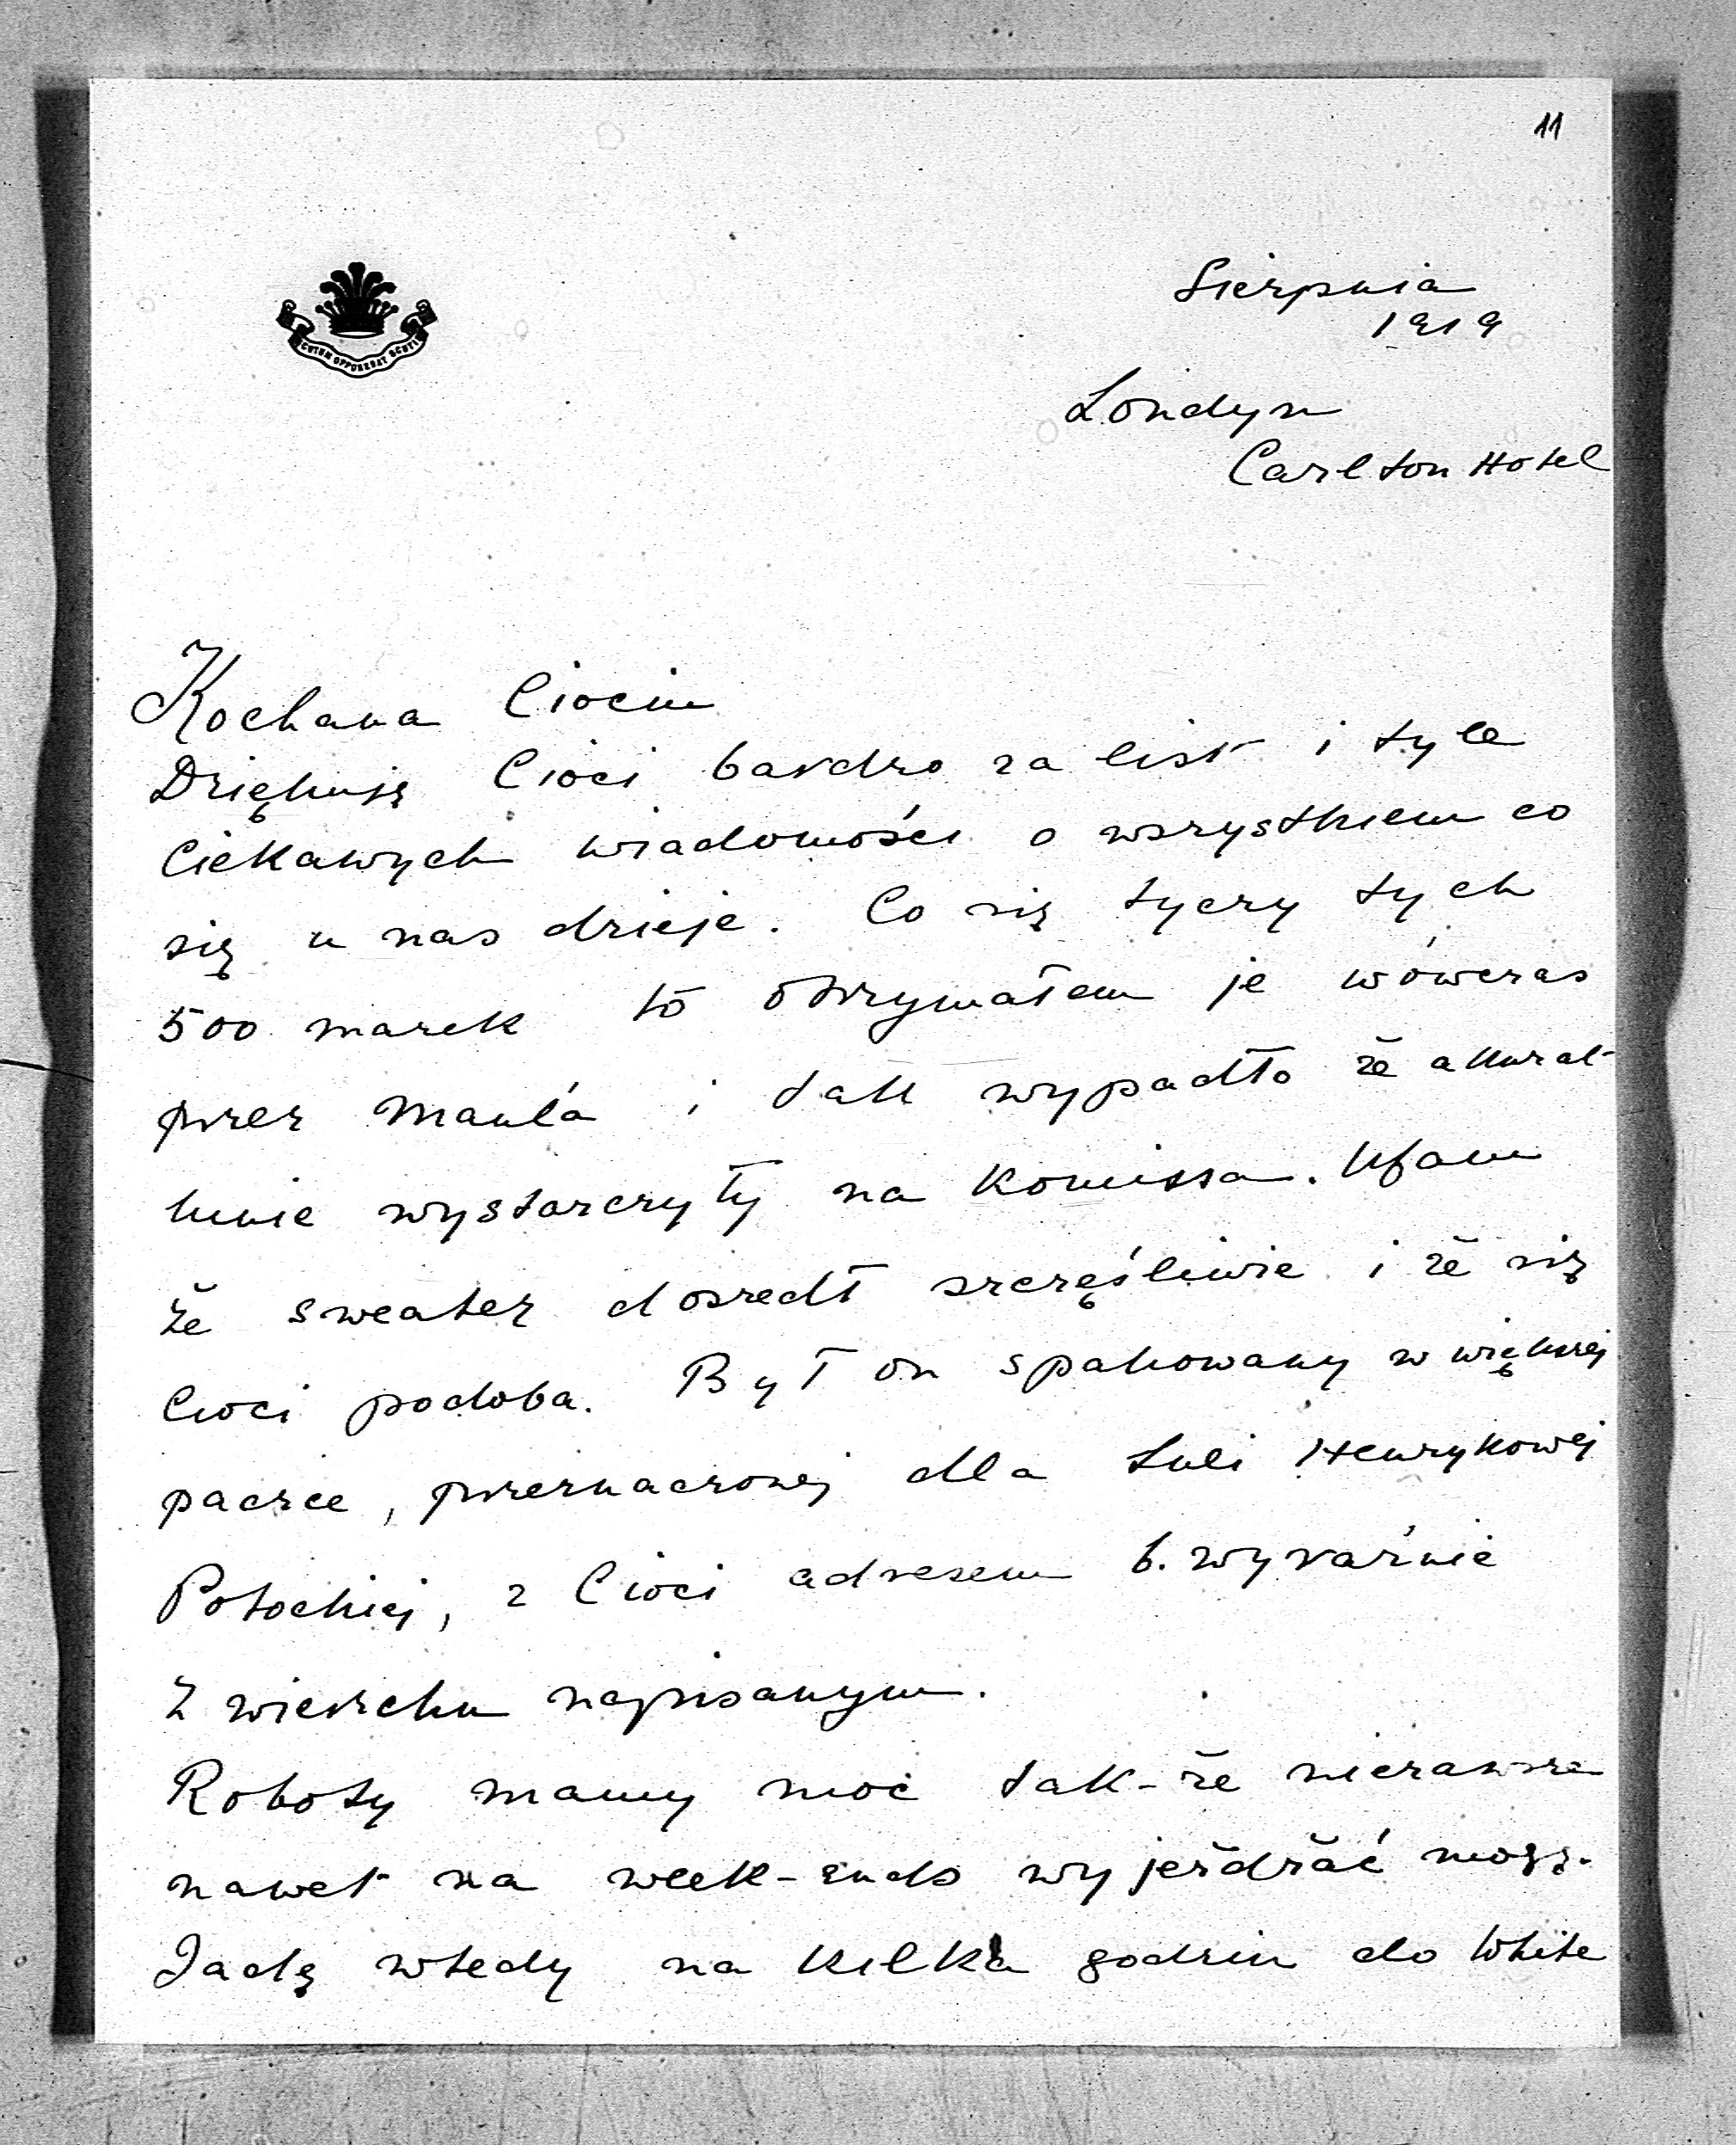 11
SCUTUM OPPONEBAT SCUTI
Sierpnia
1919
Londyn
Carlton Hotel
Kochana Ciociu
Dziękuję Cioci bardzo za list i tyle
Ciekawych wiadomości o wszystkiem co
się u nas dzieje. Co się tyczy tych
500 marek to otrzymałem je wówczas
przez i tak wypadło że akurat
nie wystarczyły na Komissa. Ufam
że sweater doszedł szczęśliwie i że się
Cioci podoba. Był on spakowany w większej
paczce, przeznaczonej dla Luli Henrykowej
Potockiej, z Cioci adresem b. wyraźnie
z wierzchu napisanym.
Roboty mamy moc tak-że niezawsze
nawet na week-ends wyjeżdżać mogę.
Jadę wtedy na kilka godzin do White